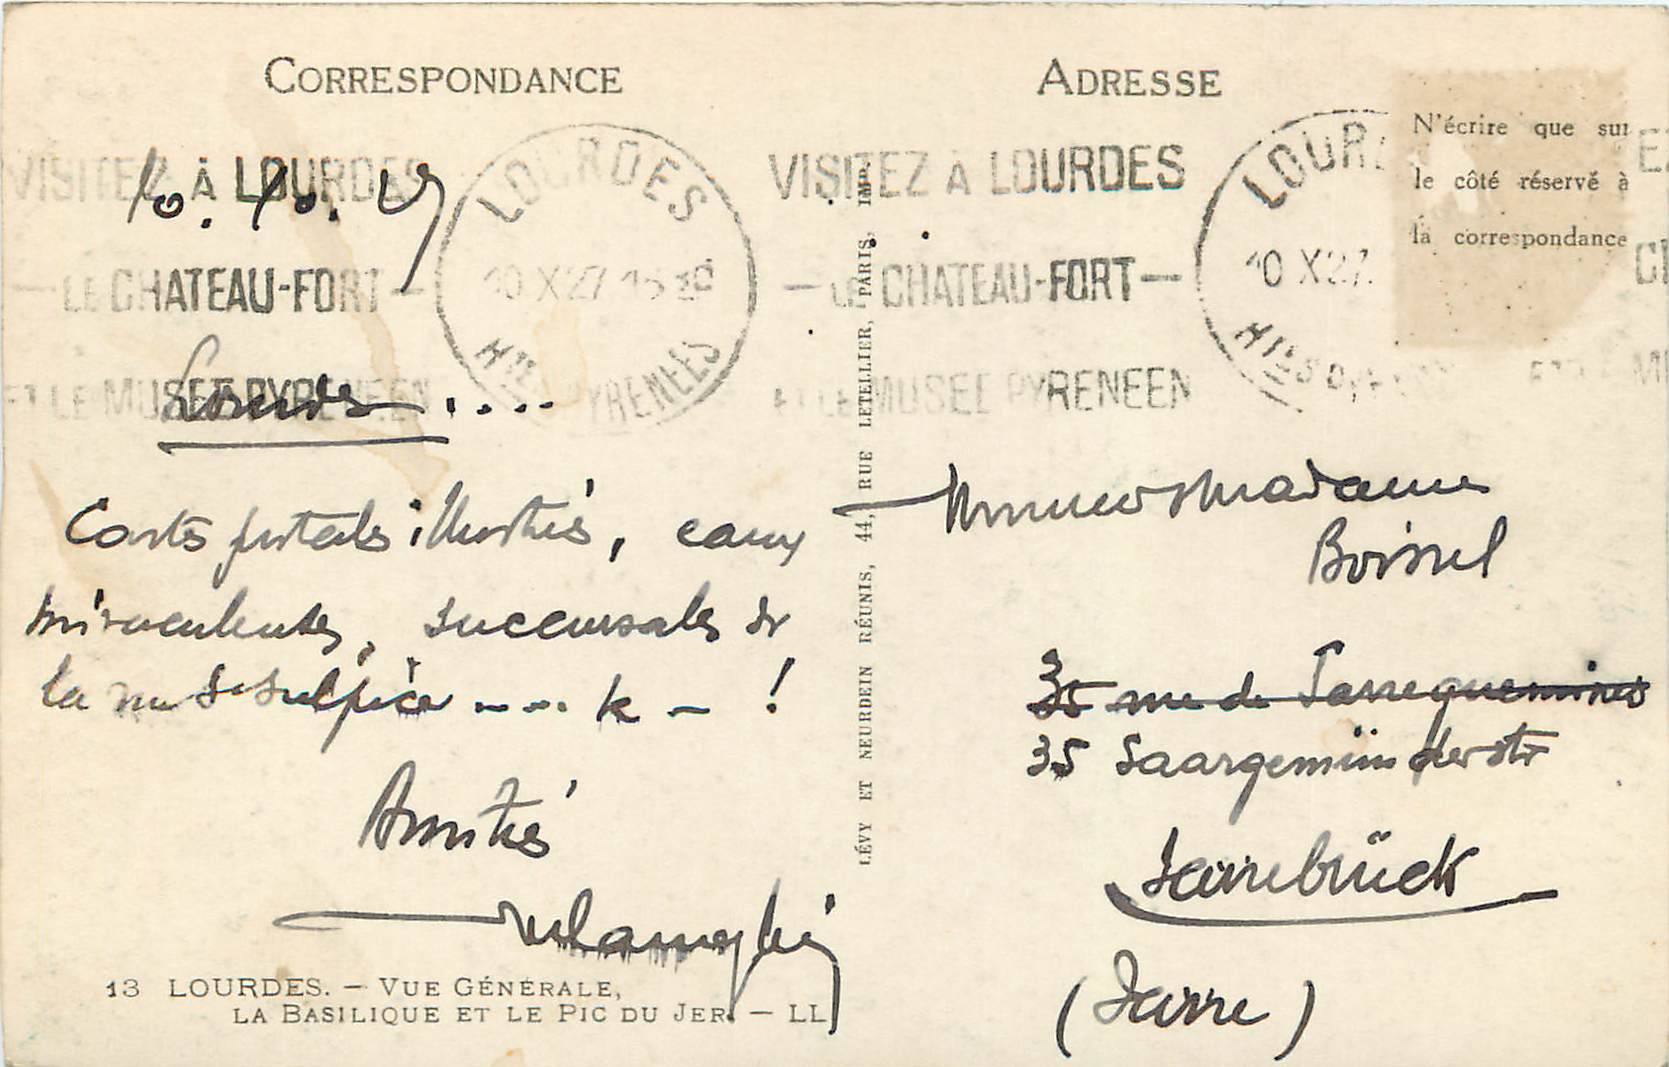 CORRESPONDANCE
VISITEZ À LOURDES
— LE CHATEAU-FORT —
ET LE MUSEE PYRENEEN
LOURDES
10 X 27 15 30
Htes PYRENEES
10. 10. 27
Lourdes ....
Cartes postales illustrées, eaux
miraculeuses, succursales de
la rue St Sulpice ---- k - !
Amitiés
13 LOURDES. — VUE GÉNÉRALE,
LA BASILIQUE ET LE PIC DU JER. — LL
LÉVY ET NEURDEIN RÉUNIS, 44, RUE LETELLIER, PARIS, IMP.
ADRESSE
VISITEZ À LOURDES
— LE CHATEAU-FORT —
ET LE MUSEE PYRENEEN
LOUR
10 X 27
Htes PY
N'écrire que sur
le côté réservé à
la correspondance
Madame
Boissel
35 rue de Sarreguemines
35 Saargemünderstr
Sarrebrück
(Sarre)